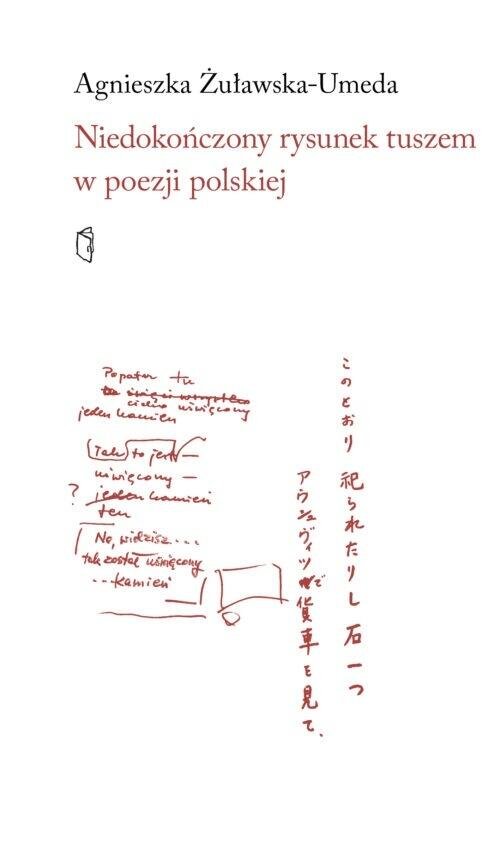 Agnieszka Żuławska-Umeda
Niedokończony rysunek tuszem
w poezji polskiej
Popatrz tu
uświęcony
jeden kamień
(Tak) to jest —
uświęcony —
? jeden kamień
ten
No, widzisz...
tak został uświęcony
...kamień
このとおり 祀られたりし 石一つ
アウシュヴィツで貨車を見て、